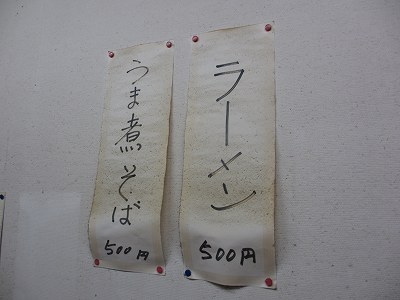 ラーメン
500円
うま煮そば
500円